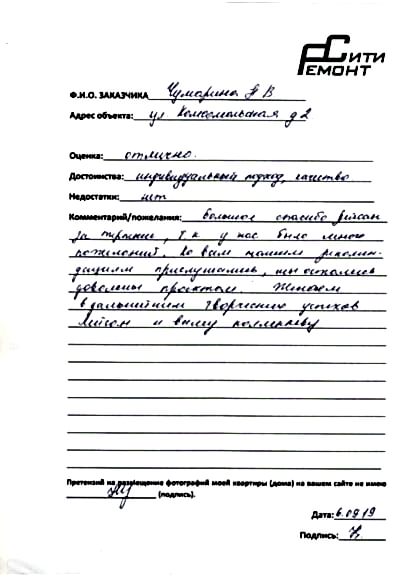 СИТИ
РЕМОНТ
Ф.И.О. ЗАКАЗЧИКА Чумарина Г В
Адрес объекта: ул Комсомольская д 2
Оценка: отлично.
Достоинства: индивидуальный подход, качество
Недостатки: нет
Комментарий/пожелания: Большое спасибо Лейсан
за терпение, т.к у нас было много
пожеланий. Ко всем нашим рекомен-
дациям прислушались, мы остались
довольны проектом. Желаем
в дальнейшем творческих успехов
Лейсан и вашему коллективу
Претензий на размещение фотографий моей квартиры (дома) на вашем сайте не имею
(подпись).
Дата: 6.09.19
Подпись: